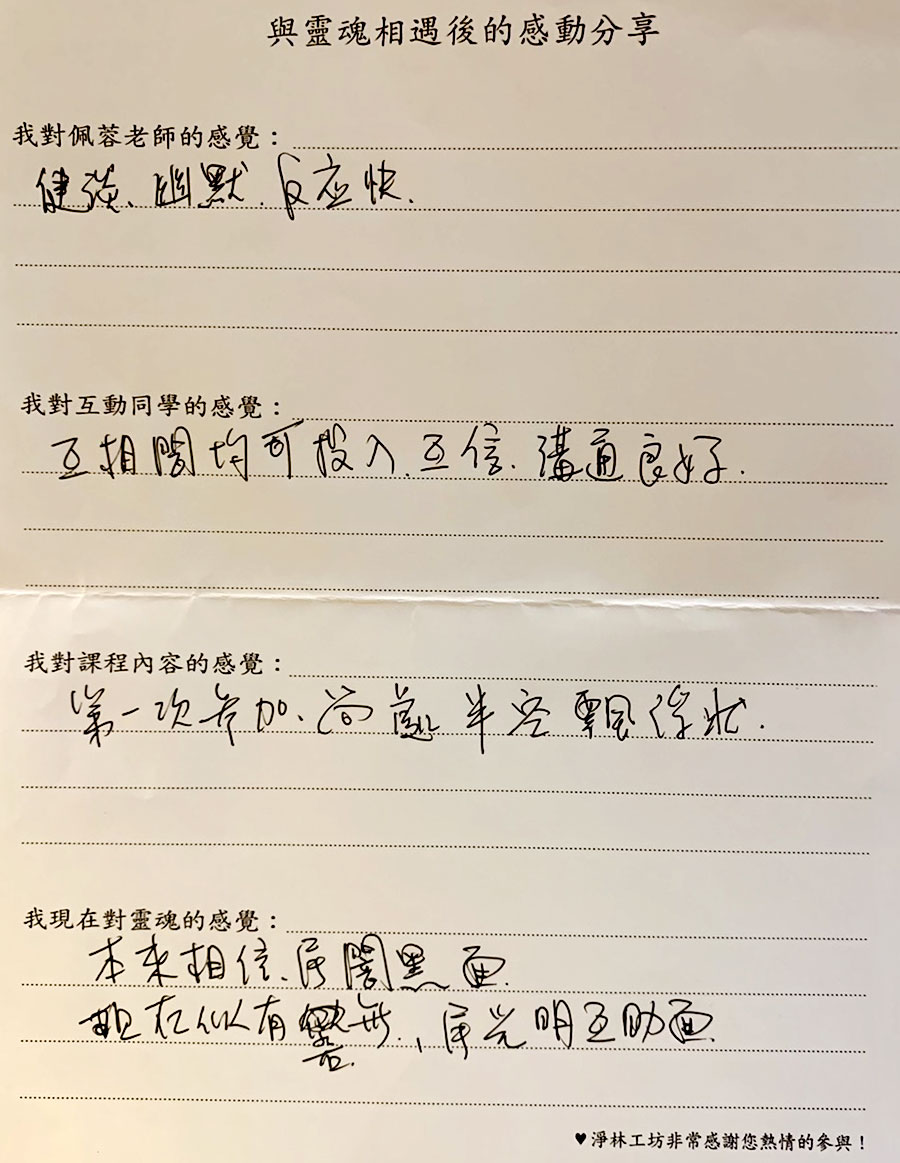 與靈魂相遇後的感動分享
我對佩蓉老師的感覺：
健談、幽默、反应快.
我對互動同學的感覺：
互相間均可投入、互信、溝通良好.
我對課程內容的感覺：
第一次参加、尚處半空飄浮状.
我現在對靈魂的感覺：
本来相信、闇黑面.
現在似有若無、光明互助面
♥淨林工坊非常感謝您熱情的參與！